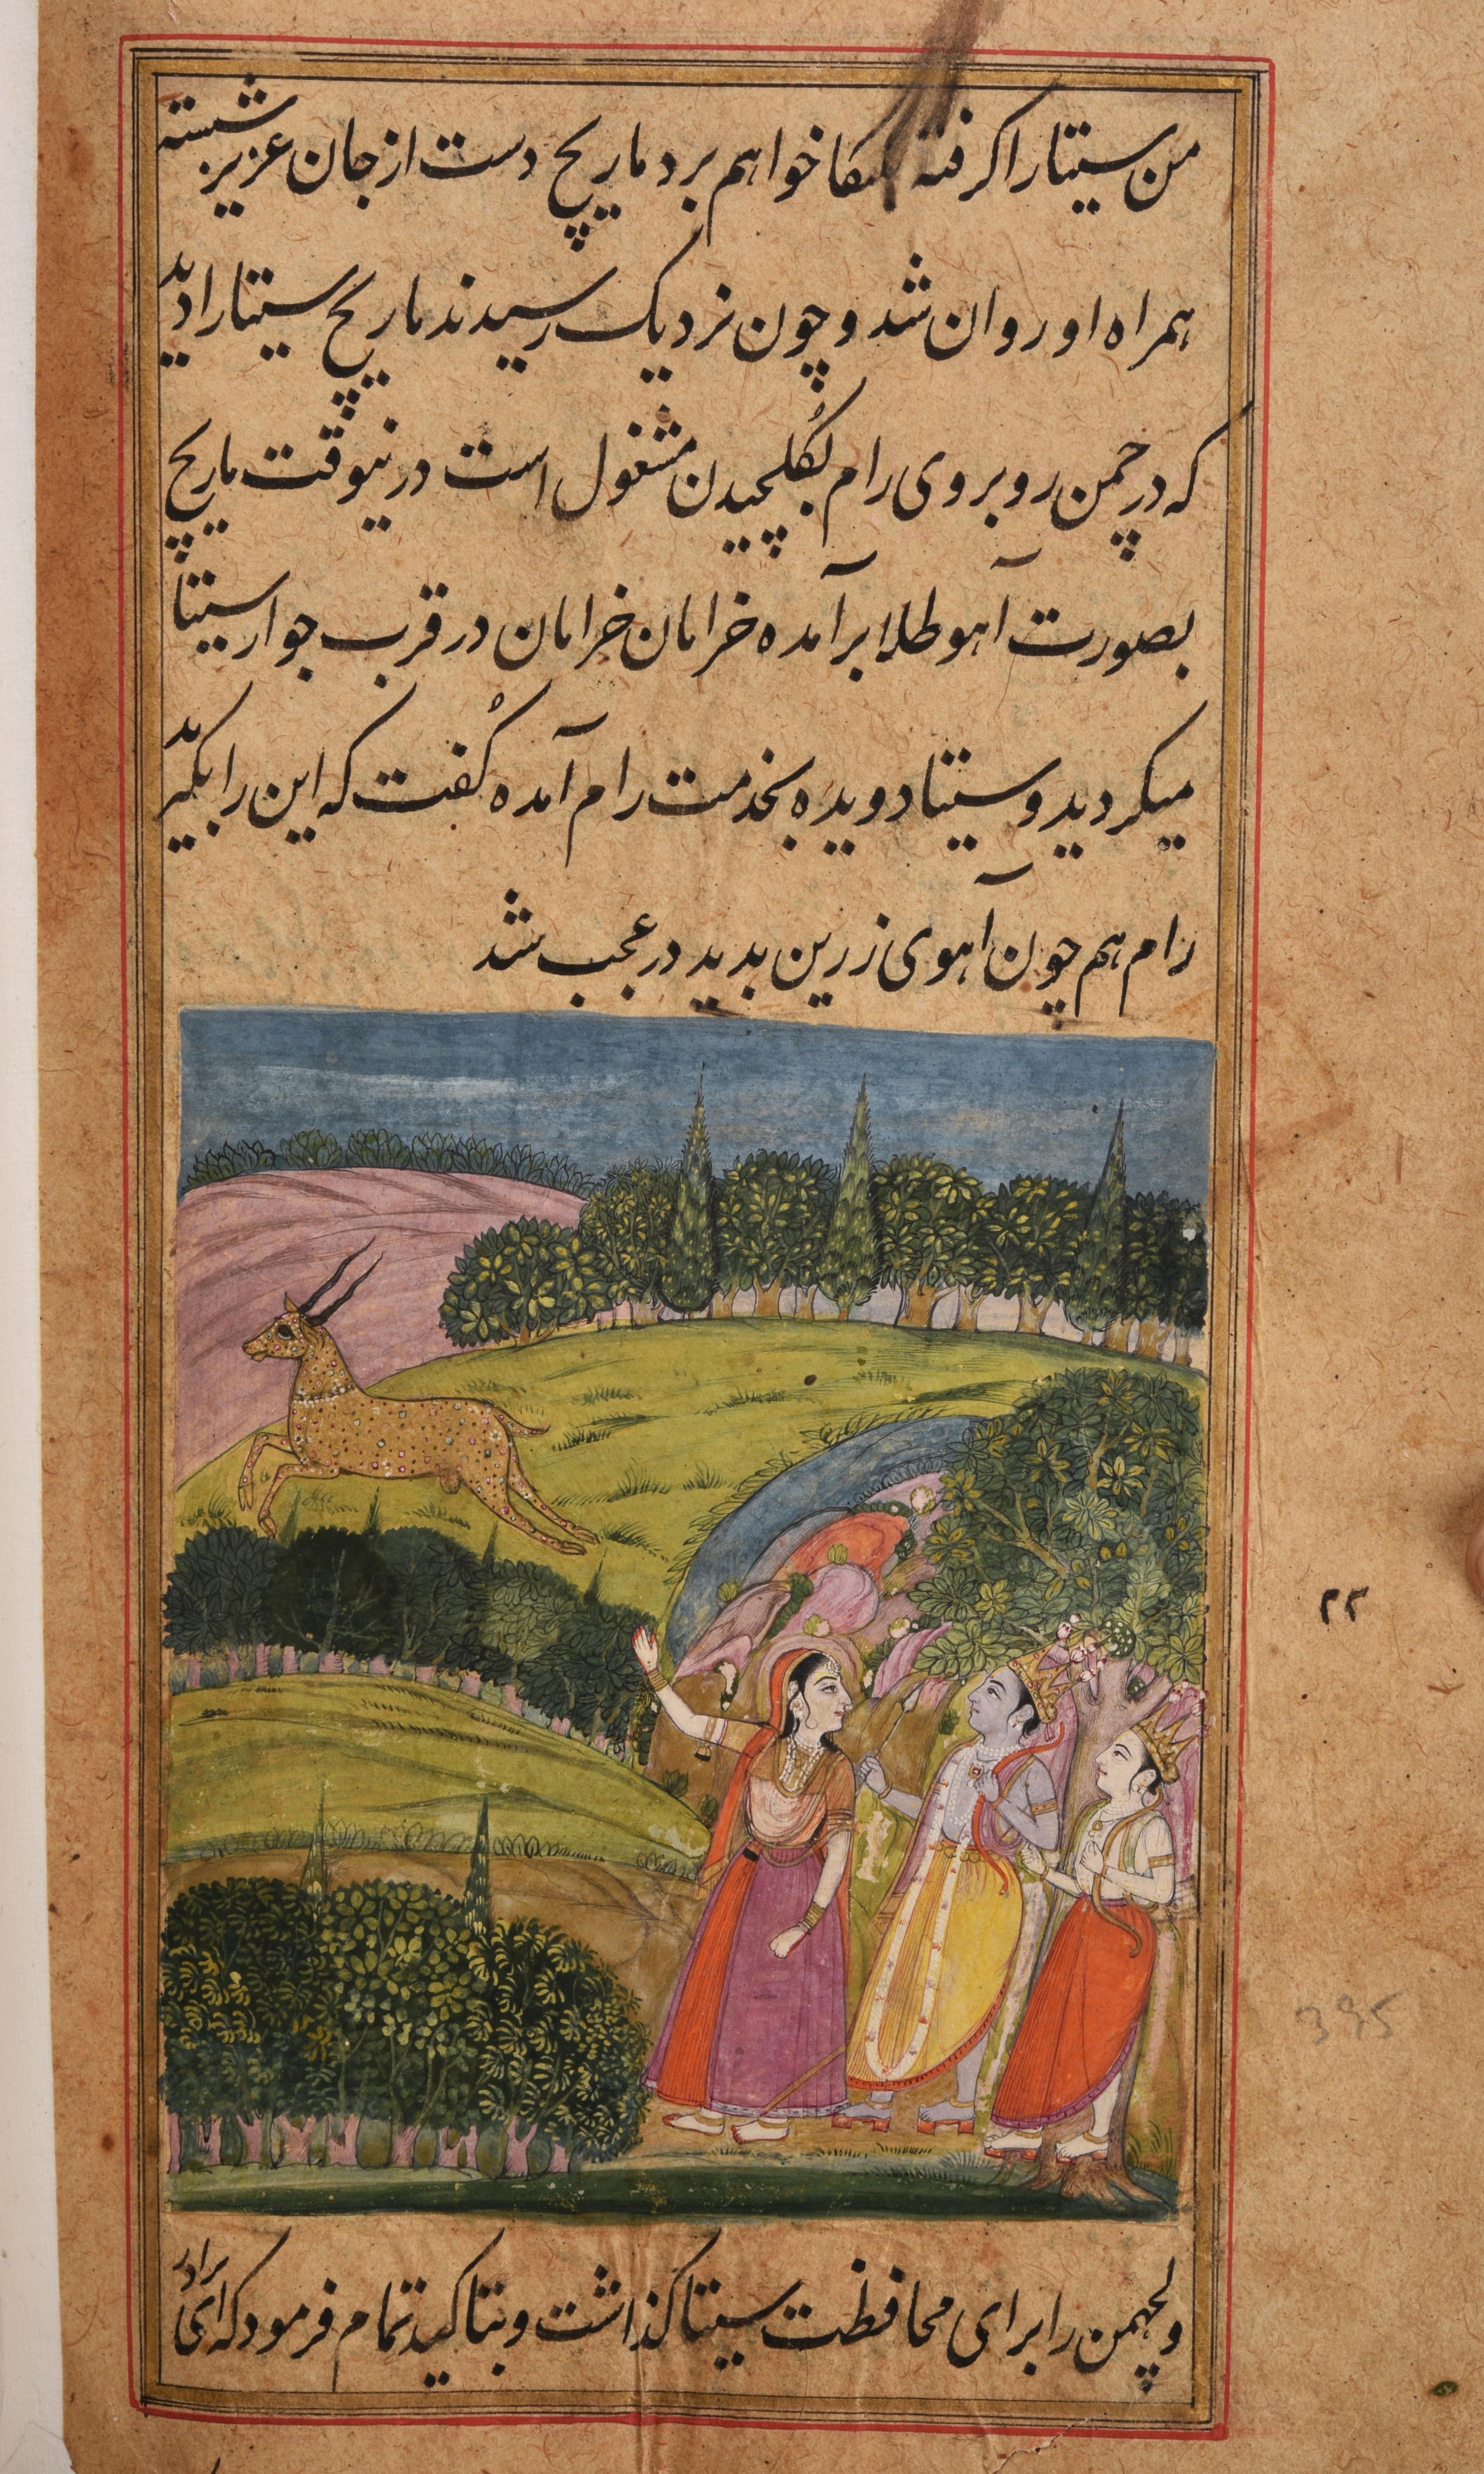 من سیتا را کرفته لنکا خواهم برد ماریچ دست از جان عزیز شسته
همراه او روان شد و چون نزدیک رسیدند ماریچ سیتا را دید
که در چمن روبروی رام بکلچیدن مشغول است درنیوقت ماریچ
بصورت آهو طلا برآمده خرامان خرامان در قرب جوار سیتا
میکردید و سیتا دویده بخدمت رام آمده کفت که این را بکیرید
رام هم چون آهوی زرین بدید در عجب شد
۲۲
395
و لچهمن را برای محافظت سیتا کذاشت و بتاکید تمام فرمود که ای برادر